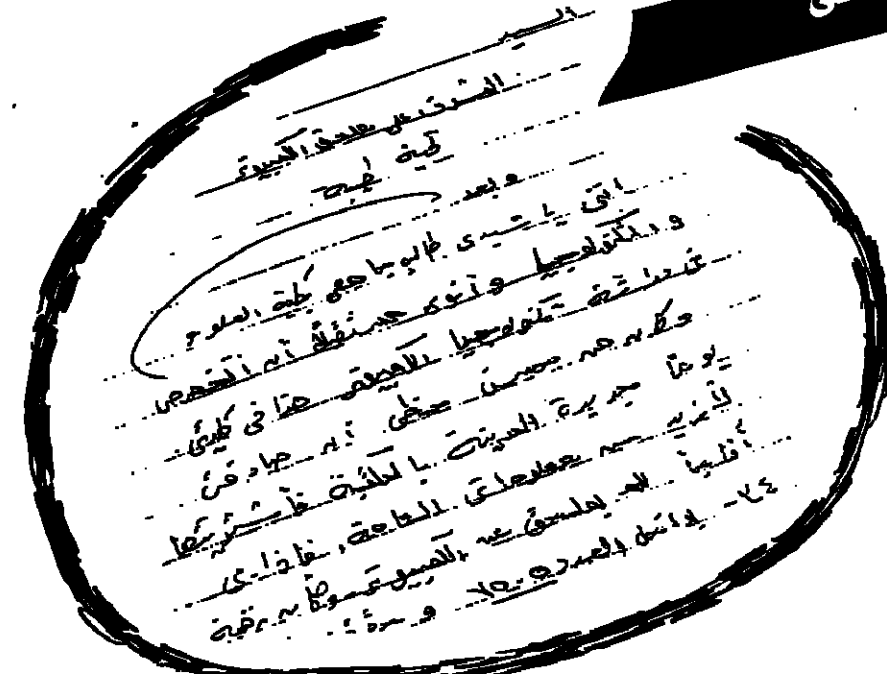 السيد
المشرف على ملحق الكمبيوتر
تحية طيبة
وبعد
إنني يا سيدي طالب جامعي بكلية العلوم
والتكنولوجيا وأنوي مستقبلاً أن أتخصص
في دراسة تكنولوجيا الكمبيوتر هذا في كليتي
وكان من حسن حظي أن صادفت
يوماً جريدة المدينة بالكلية فاشتريتها
لأزيد من معلوماتي العامة، فإذا بي
أقلبها إلى ملحق عن الكمبيوتر برقية
٢٤- العدد ٧٥٠٥